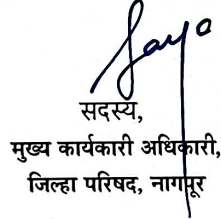 सदस्य,
मुख्य कार्यकारी अधिकारी,
जिल्हा परिषद, नागपूर